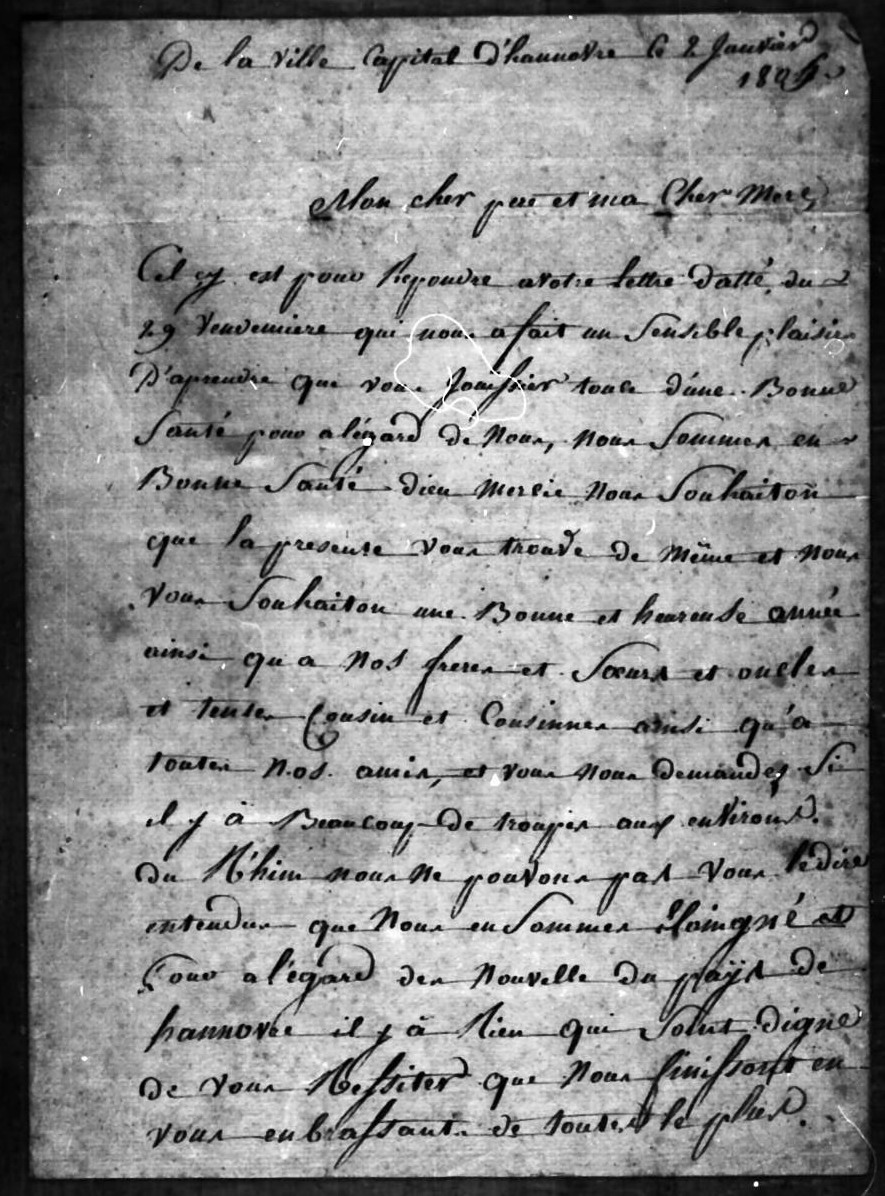 De la ville Capital d'hannovre le 2 Janvier
Mon cher pere et ma Cher Mere,
Cel cy est pour Repondre avotre lettre datté du
29 Vendemiere qui nous a fait un Sensible plaisir
D'aprendre que vous Jouissier tous d'une Bonne
Santé pour a l'égard de Nous, nous Sommes en
Bonne Santé dieu mercie Nous Souhaiton
que la presente vous trouve de même et Nous
Vous Souhaiton une Bonne et heureuse année
ainsi qu a Nos freres et Sœurs et oncles
et tentes Cousin et Cousinnes ainsi qu'a
toutes nos amis, et vous nous demandes Si
il y à Beaucoup de troupes aux environs.
du R'hin nous ne pouvons pas Vous le dire
entendus que Nous en Sommes Eloingné et
Pour a l'égard des Nouvelle du payis de
hannovre il y à Rien qui Soint digne
de vous Ressiter que Nous finissont en
vous enbrassant de toutes le plus.